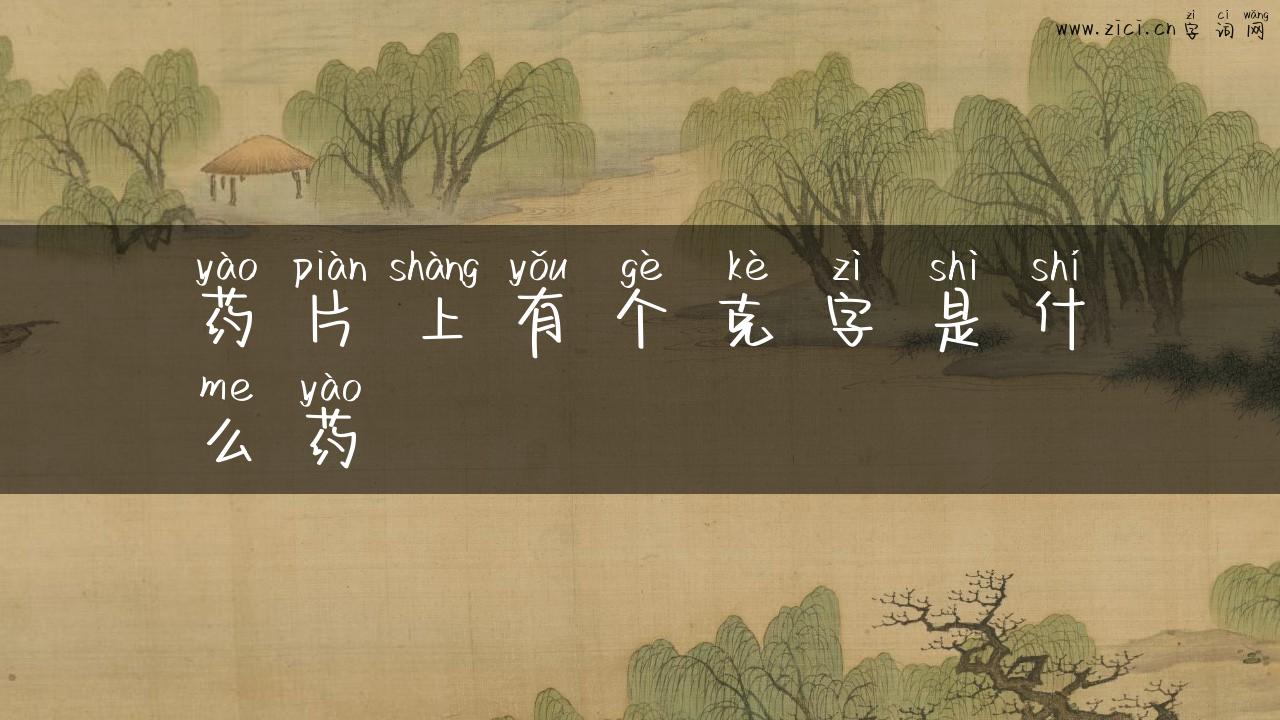 zì cí wǎng
www.zici.cn 字 词 网
yào piàn shàng yǒu gè kè zì shì shí
药 片 上 有 个 克 字 是 什
me yào
么 药